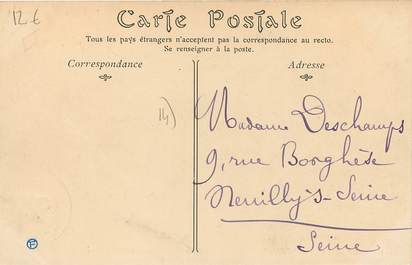 12 €
Carte Postale
Tous les pays étrangers n'acceptent pas la correspondance au recto.
Se renseigner à la poste.
Correspondance
Adresse
14)
Madame Deschamps
9, rue Borghèse
Neuilly s- Seine
Seine